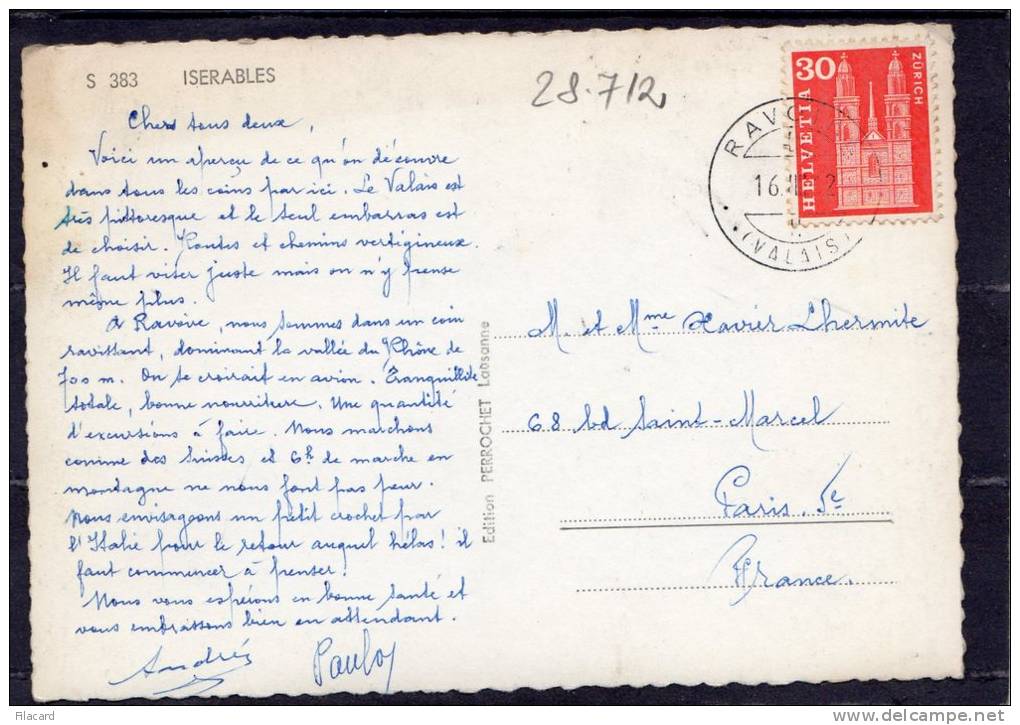 S 383 ISERABLES
28.712
Chers tous deux,
Voici un aperçu de ce qu'on découvre
dans tous les coins par ici. Le Valais est
très pittoresque et le seul embarras est
de choisir. Routes et chemins vertigineux.
Il faut viter juste mais on n'y pense
même plus.
A Ravoire, nous sommes dans un coin
ravissant, dominant la vallée du Rhône de
700 m. On se croirait en avion. Tranquillité
totale, bonne nourriture. Une quantité
d'excursions à faire. Nous marchons
comme des Suisses et 6h de marche en
montagne ne nous font pas peur.
Nous envisageons un petit crochet par
l'Italie pour le retour auquel hélas! il
faut commencer à penser!
Nous vous espérons en bonne santé et
vous embrassons bien en attendant.
André
Edition PERROCHET Lausanne
HELVETIA 30
ZÜRICH
RAVOIRE
16.
(VALAIS)
M. et Mme Xavier Lhermite
68 bd Saint-Marcel
Paris 5e
France.
Filacard
www.delcampe.net